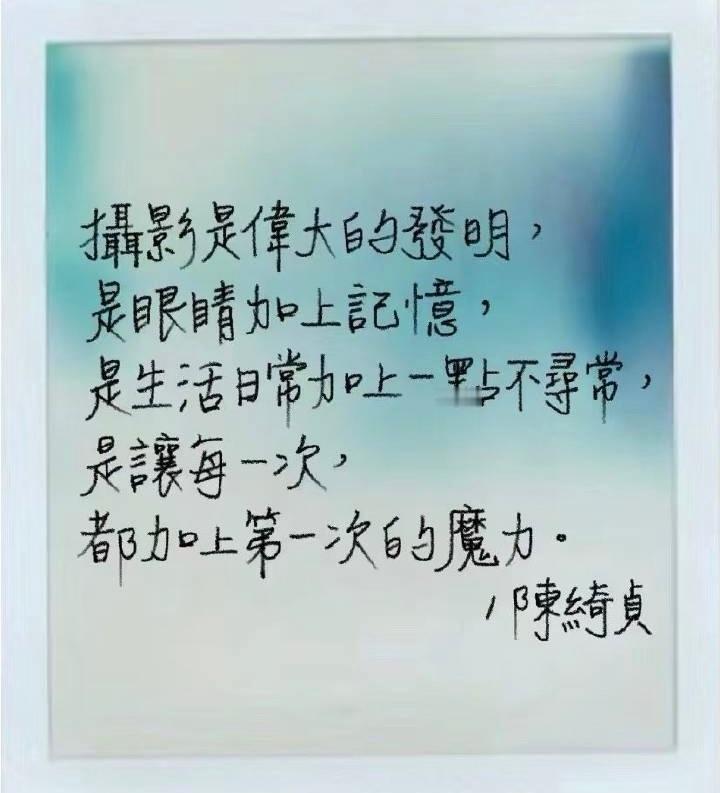 攝影是偉大的發明，
是眼睛加上記憶，
是生活日常加上一點不尋常，
是讓每一次，
都加上第一次的魔力。
/陳綺貞